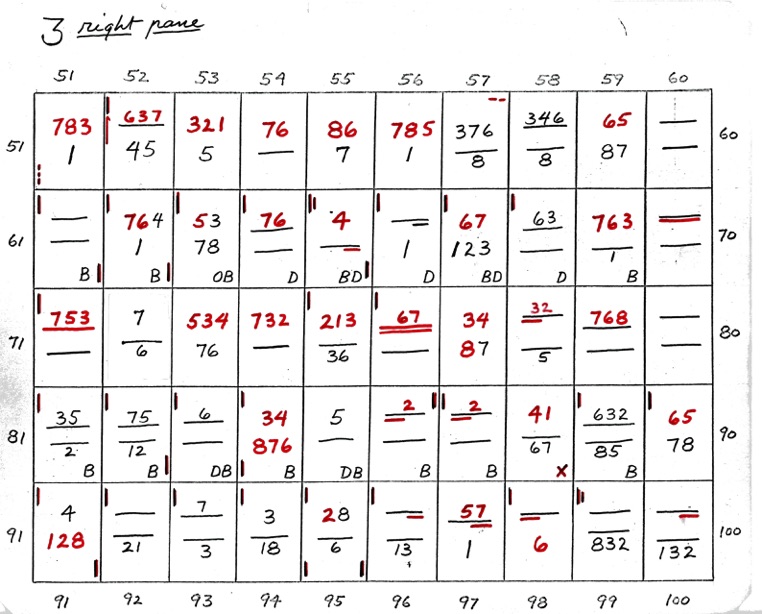 3 right pane
51 52 53 54 55 56 57 58 59 60
783 637 321 76 86 785 376 346 65
51 60
1 45 5 7 1 8 8 87
764 53 76 4 67 63 763
61 70
1 78 1 123 1
B B OB D BD D BD D B
753 7 534 732 213 67 34 32 768
71 80
6 76 36 87 5
35 75 6 34 5 2 2 41 632 65
81 90
2 12 876 67 85 78
B B DB B DB B B X B
4 7 3 28 57
91 100
128 21 3 18 6 13 1 6 832 132
91 92 93 94 95 96 97 98 99 100